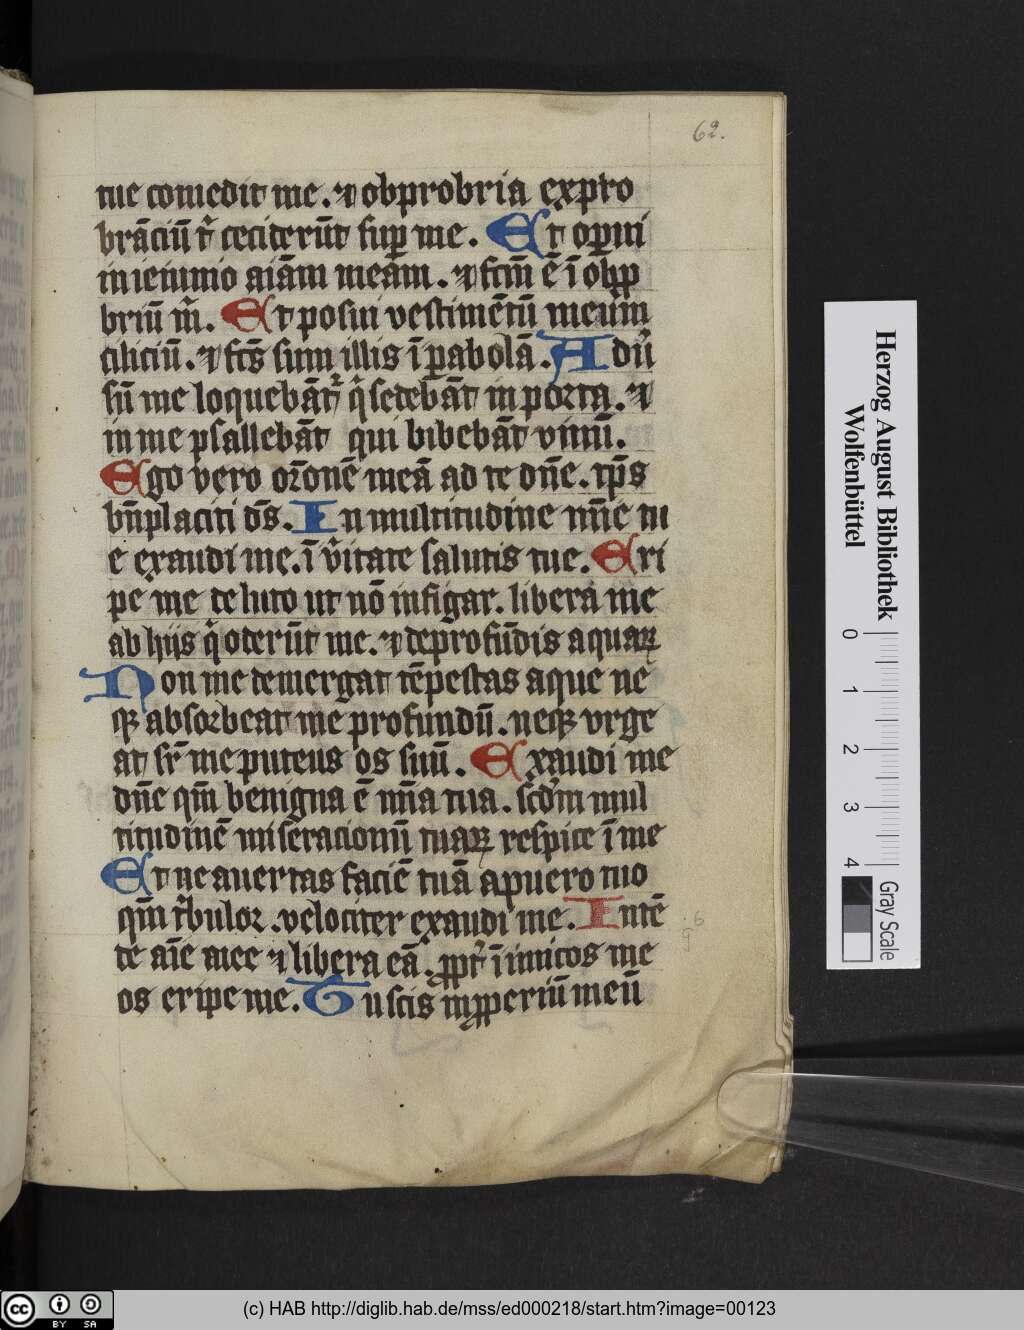 62.
tue comedit me. ⁊ obprobria expro
brāciū t̄ ceciderūt sup me. Et opui
in ieiunio aīam meam. ⁊ fcm̄ ē ī obp
briū m̄. Et posui vestimētū meum
ciliciū. ⁊ fcs̄ sum illis ī pabolā. Adu
sū me loquebāt q̄ sedebāt in porta. ⁊
in me psallebāt qui bibebāt vinū.
Ego vero or̄onē meā ad te dn̄e. tp̄s
bn̄placiti ds̄. In multitudine mīe tu
e exaudi me. ī v̄itate salutis tue. Eri
pe me de luto ut nō infigar. libera me
ab hijs q̄ oderūt me. ⁊ de profūdis aquaꝝ
Non me demergat tēpestas aque ne
qꝫ absorbeat me profundū. neqꝫ vrge
at sr̄ me puteus os suū. Exaudi me
dn̄e qm̄ benigna ē mīa tua. scdm̄ mul
titudinē miseracionū tuaꝝ respice ī me
Et ne auertas faciē tuā a puero tuo
qm̄ t̄bulor. velociter exaudi me. Intē
de aīe mee ⁊ libera eā. ꝓpt̄ īimicos me
os eripe me. Tu scis inꝓperiū meū
Herzog August Bibliothek
Wolfenbüttel
0 1 2 3 4
Gray Scale
cc BY SA
(c) HAB http://diglib.hab.de/mss/ed000218/start.htm?image=00123